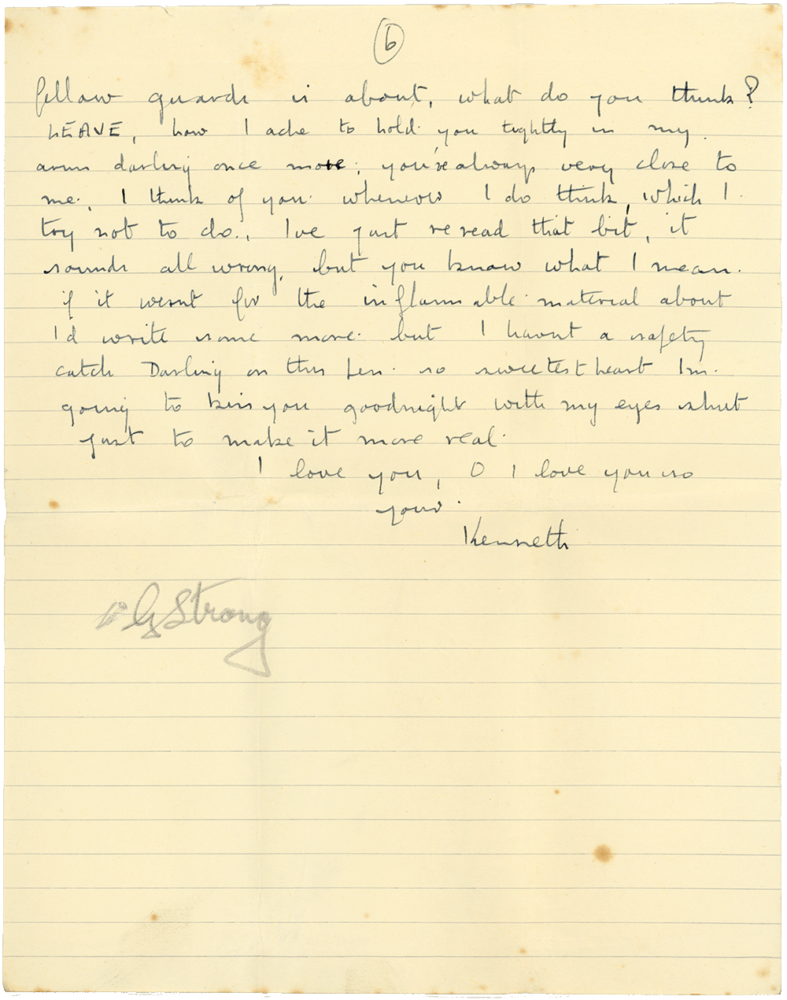 6
fellow guards is about, what do you think?
LEAVE, how I ache to hold you tightly in my
arms darling once more; you're always very close to
me, I think of you whenever I do think, which I
try not to do., Ive just re read that bit, it
sounds all wrong, but you know what I mean.
if it wernt for the inflammable material about
I'd write some more but I havnt a safety
catch Darling on this pen. so sweetest heart Im
going to kiss you goodnight with my eyes shut
just to make it more real.
I love you, O I love you so
yours.
Kenneth
G Strong